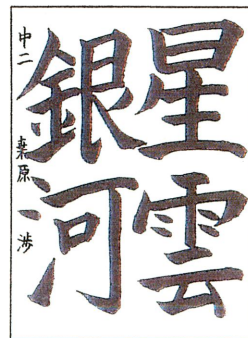 星雲
銀河
中二 桑原 渉